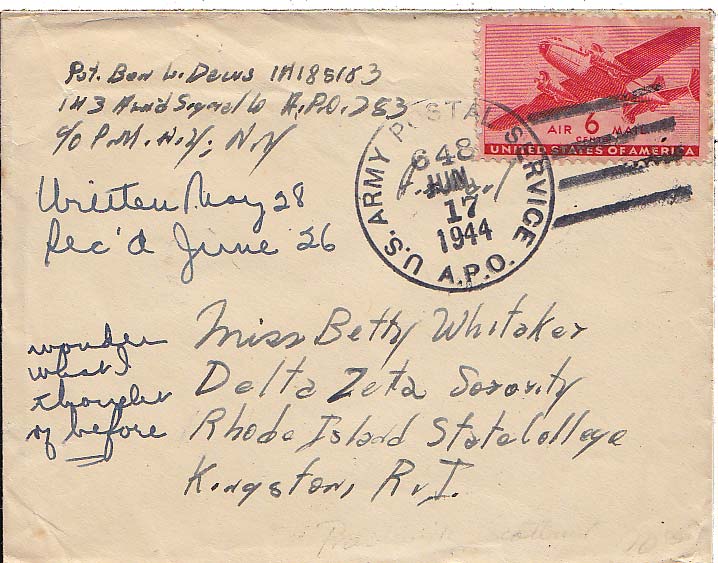 Pvt. Ben W. Dews 111185183
143 Arm'd Signal Co A.P.O. 253
c/o P.M. N.Y, N.Y
Written May 28
Rec'd June 26
AIR 6 MAIL
CENTS
UNITED STATES OF AMERICA
U.S. ARMY POSTAL SERVICE
648
JUN
17
1944
A.P.O.
wonder
what I
thought
of before
Miss Betty Whitaker
Delta Zeta Sorority
Rhode Island State College
Kingston, R.I.